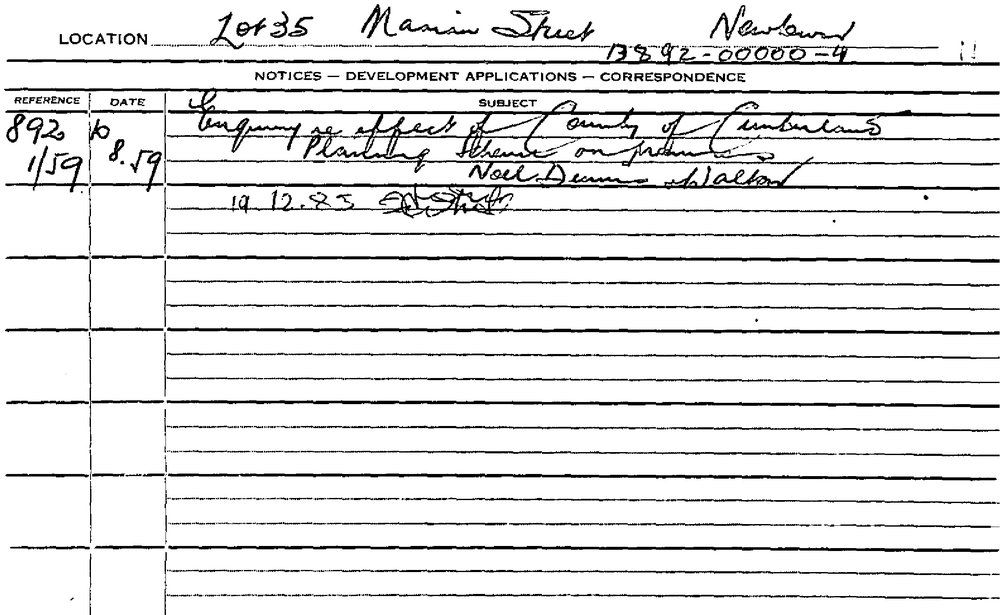 LOCATION Lot 35 Street Newtown
B892-00000-4
NOTICES — DEVELOPMENT APPLICATIONS — CORRESPONDENCE
REFERENCE DATE SUBJECT
892 10 Enquiry re effect of County of Cumberland
1/59 8.59 Planning Scheme on premises
Noel Dennis Walton
19.12.85